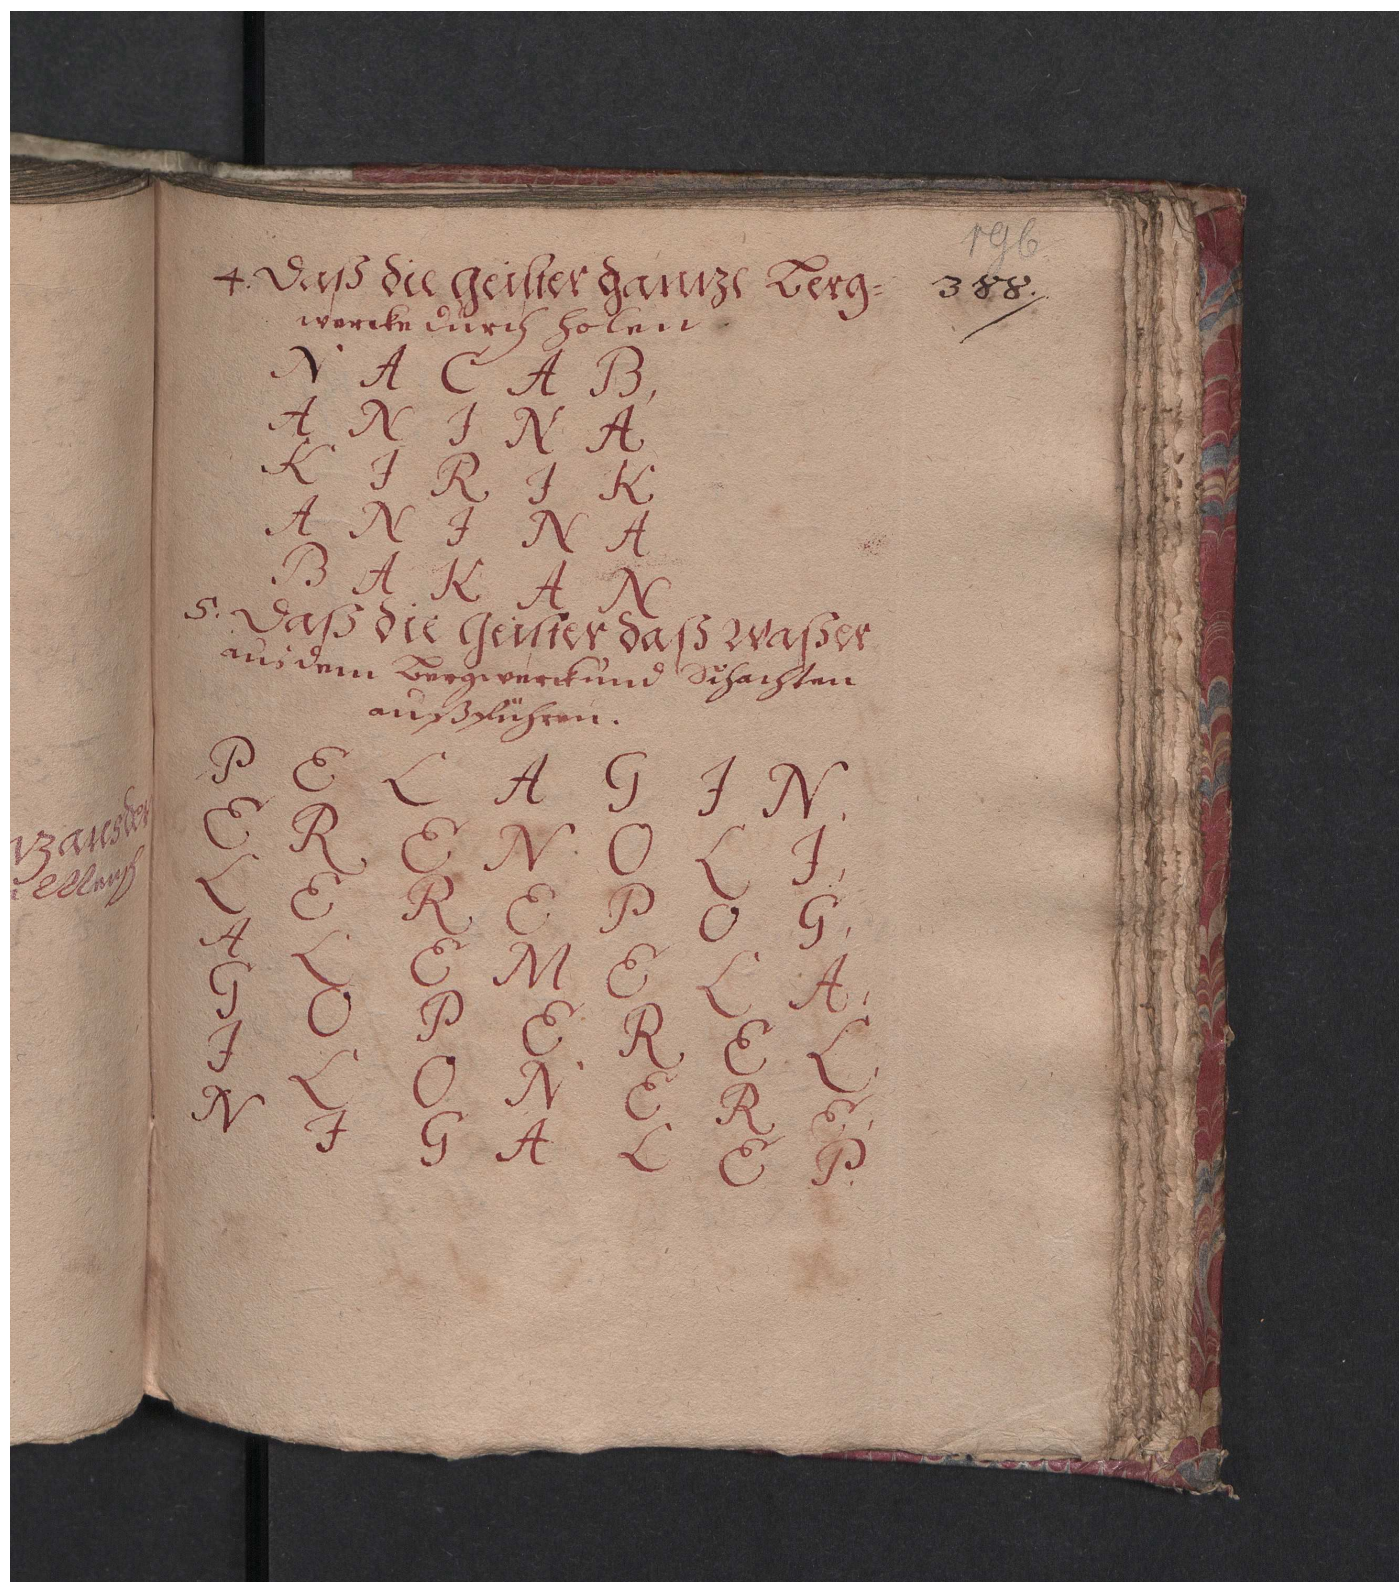 196.
4. Daß die geister gantze Berg= 388.
wercke durch holen
N A C A B,
A N I N A
K I R I K
A N I N A
B A K A N
5. Daß die geister daß Waßer
aus dem Bergwerck und Schachten
außführen.
P E L A G I N.
E R E N O L I,
L E R E P O G,
A L E M E L A,
G O P E R E L,
I L O N E R E,
N I G A L E P.